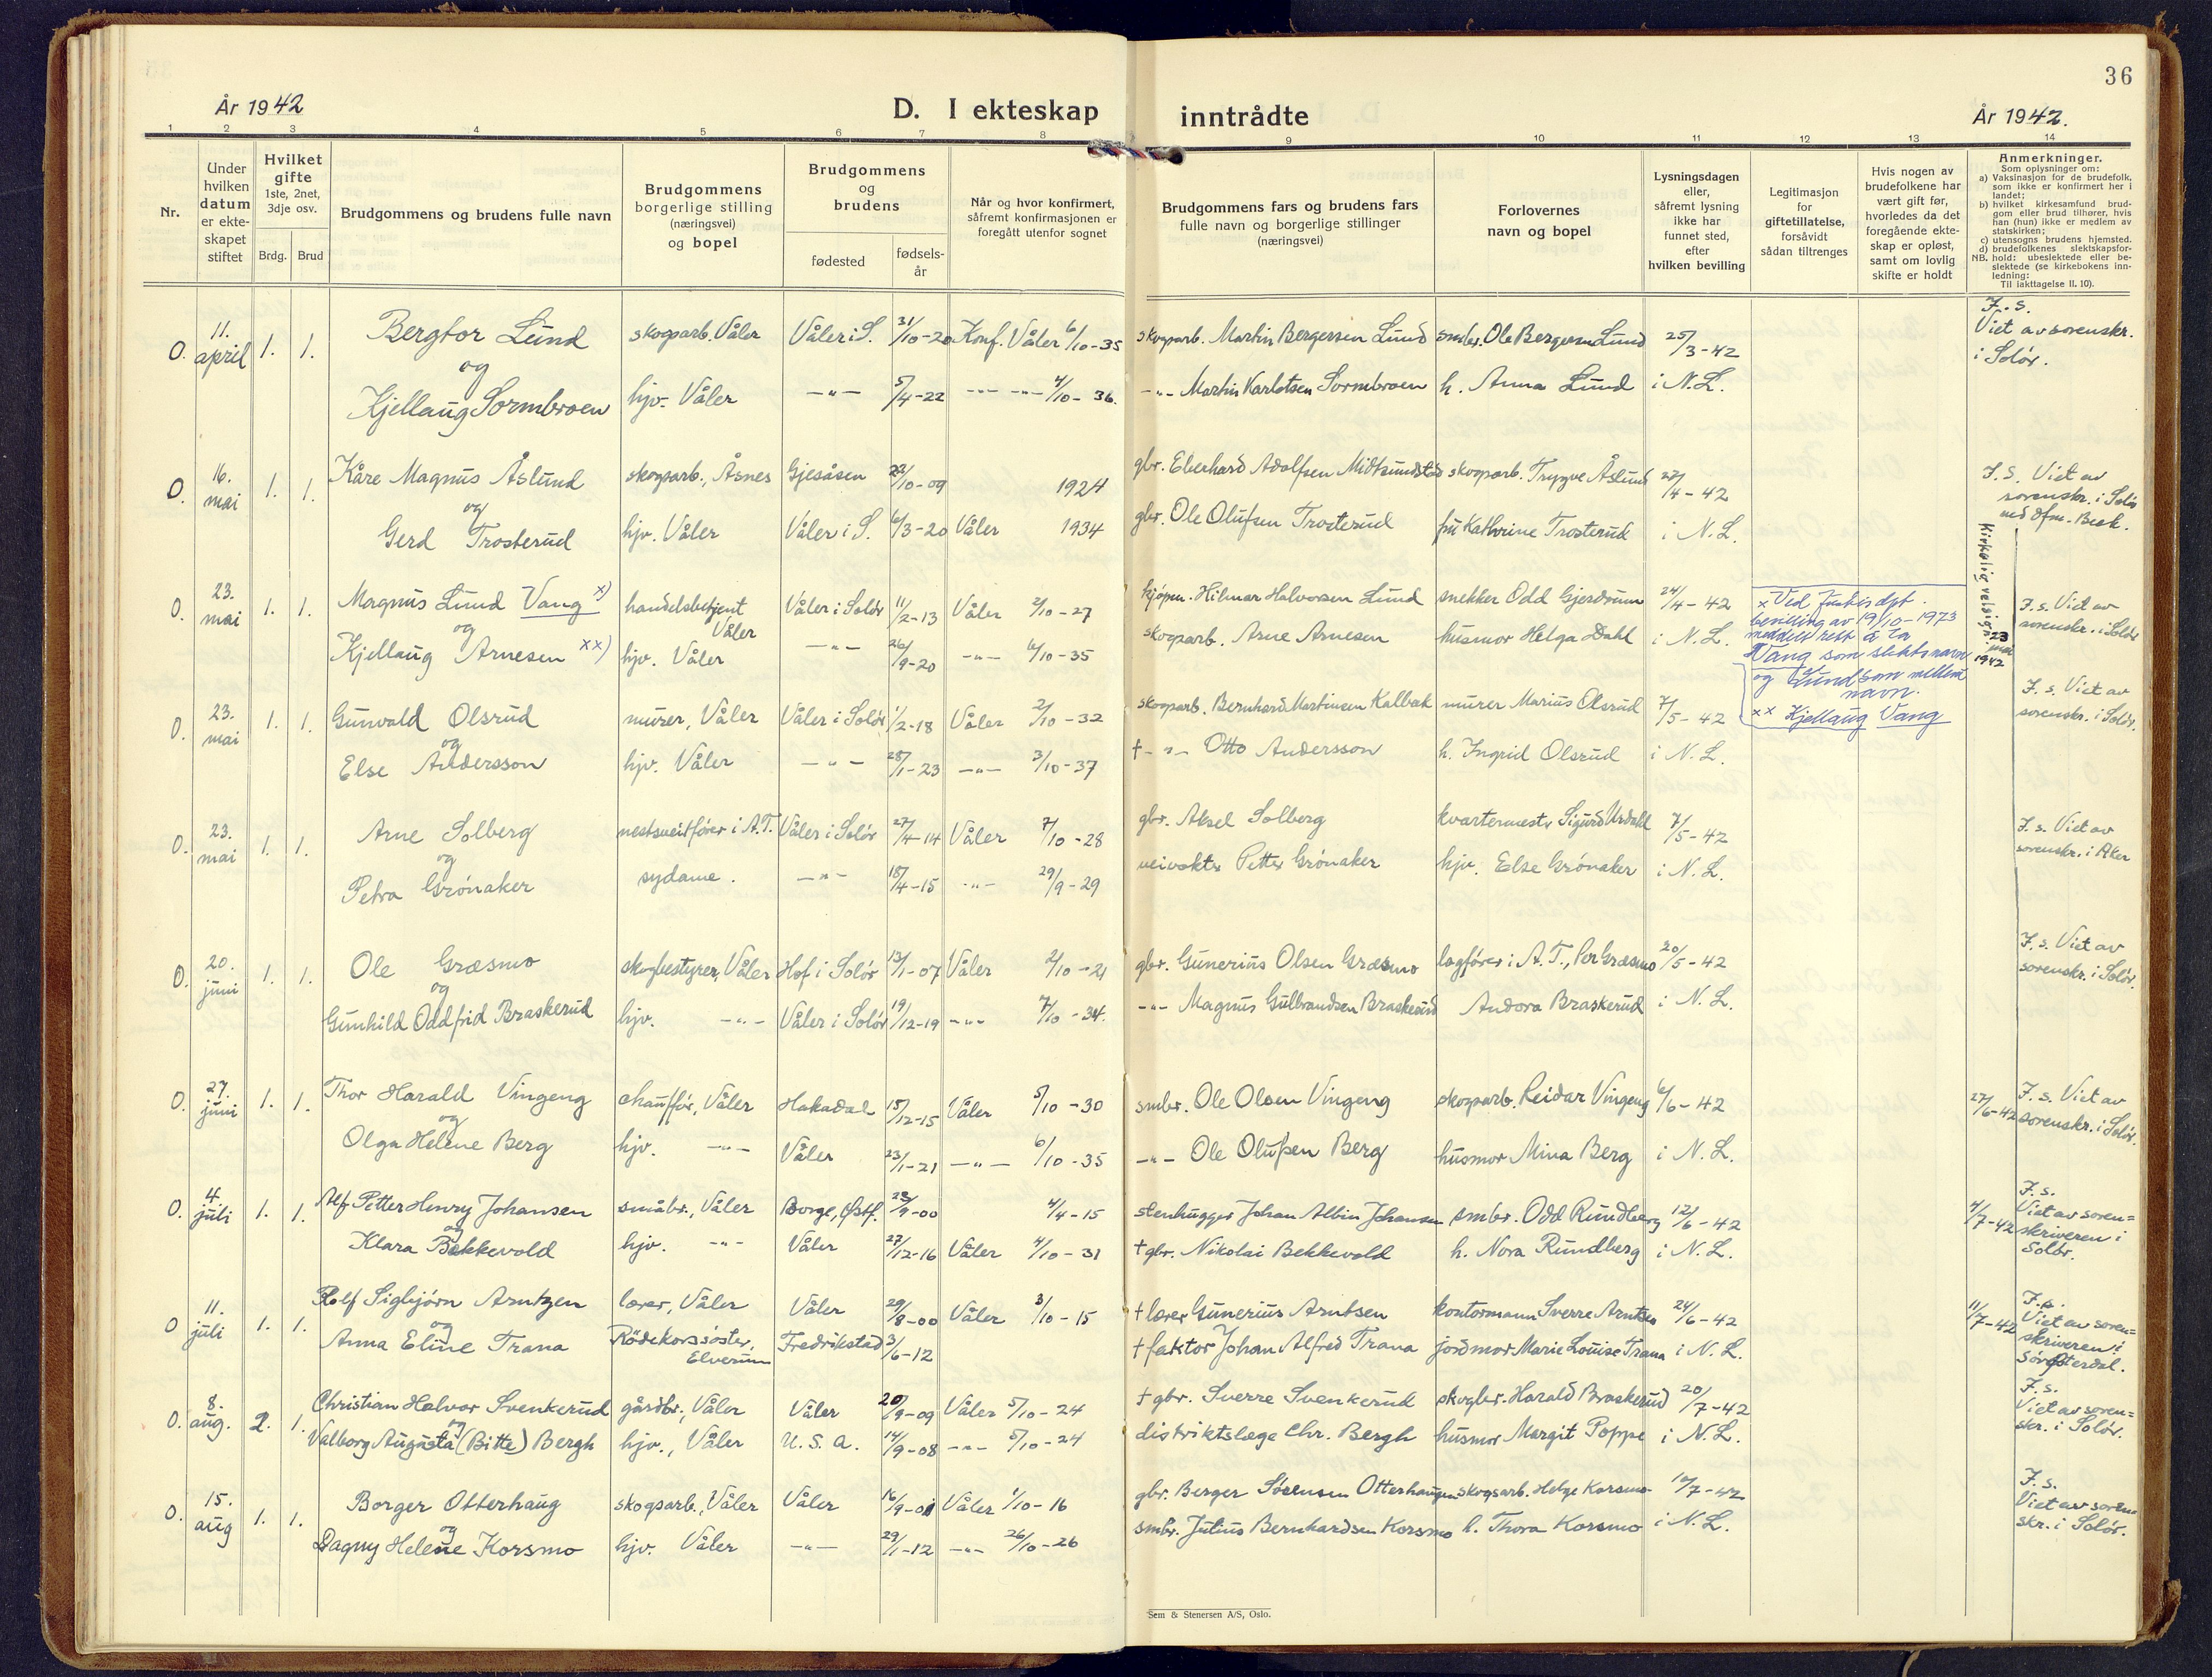 36
År 1942
D. I ekteskap inntrådte
År 1942.
1 2 3 4 5 6 7 8 9 10 11 12 13 14
Nr.
Under hvilken datum er ekte- skapet stiftet
Hvilket gifte 1ste, 2net, 3dje osv.
Brdg. Brud
Brudgommens og brudens fulle navn
Brudgommens borgerlige stilling (næringsvei) og bopel
Brudgommens og brudens
fødested
fødsels- år
Når og hvor konfirmert, såfremt konfirmasjonen er foregått utenfor sognet
Brudgommens fars og brudens fars fulle navn og borgerlige stillinger (næringsvei)
Forlovernes navn og bopel
Lysningsdagen eller, såfremt lysning ikke har funnet sted, efter hvilken bevilling
Legitimasjon for giftetillatelse, forsåvidt sådan tiltrenges
Hvis nogen av brudefolkene har vært gift før, hvorledes da det foregående ekte- skap er opløst, samt om lovlig skifte er holdt
Anmerkninger.
Som oplysninger om:
a) Vaksinasjon for de brudefolk, som ikke er konfirmert her i landet;
b) hvilket kirkesamfund brud- gom eller brud tilhører, hvis han (hun) ikke er medlem av statskirken;
c) utensogns brudens hjemsted.
d) brudefolkenes slektskapsfor- hold: ubeslektede eller be- slektede (se kirkebokens inn- ledning:
NB.
Til iakttagelse II, 10).
0. 11. april 1. 1. Bergtor Lund skogarb. Våler Våler i S. 31/10-20 Konf. Våler 6/10-35 skogarb. Martin Bergersen Lund smbr. Ole Bergersen Lund 25/3-42 F. s. Viet av sorenskr. i Solør.
og
Kjellaug Sormbroen hjv. Våler -"- 5/4-22 -"- -"- 4/10-36. -"- Martin Karlotsen Sormbroen h. Anna Lund i N.L.
0. 16. mai 1. 1. Kåre Magnus Åslund skogarb., Åsnes Gjesåsen 22/10-09 1924 gbr. Eberhard Adolfsen Midtsundstad skogarb. Trygve Åslund 27/4-42 F. S. Viet av sorenskr. i Solør
og
Gerd Trosterud hjv. Våler Våler i S. 6/3-20 Våler 1934 gbr. Ole Olufsen Trosterud fru Kathrine Trosterud i N.L.
0. 23. mai 1. 1. Magnus Lund Vang x) handelsbetjent Våler Våler i Solør 11/2-13 Våler 2/10-27 kjøpm. Hilmar Halvorsen Lund snekker Odd Gjerdrum 24/4-42 F. s. Viet av sorenskr. i Solør
og
Kjellaug Arnesen xx) hjv. Våler -"- 26/9-20 -"- 6/10-35 skogarb. Arne Arnesen husmor Helga Dahl i N.L.
x Ved Justisdpt.
bevilling av 19/10-1973
meddelt rett å ta
Vang som slektsnavn
og Lund som mellom
navn.
xx Kjellaug Vang
Kirkelig velsign. 23 mai 1942
0. 23. mai 1. 1. Gunvald Olsrud murer, Våler Våler i Solør 1/2-18 Våler 2/10-32 skogarb. Bernhard Martinsen Kalbak murer Marius Olsrud 7/5-42 F. s. Viet av sorenskr. i Solør.
og
Else Andersson hjv. Våler -"- 28/1-23 -"- 3/10-37 † -"- Otto Andersson h. Ingrid Olsrud i N.L.
0. 23. mai 1. 1. Arne Solberg nestsveitfører i A.T. Våler i Solør 27/4-14 Våler 7/10-28 gbr. Aksel Solberg kvartermestr Sigurd 7/5-42 F. s. Viet av sorenskr. i Aker
og
Petra Grønaker sydame. -"- 18/4-15 -"- 29/9-29 veivokter Petter Grønaker hjv. Else Grønaker i N.L.
0. 20. juni 1. 1. Ole Græsmo skogbestyrer, Våler Hof i Solør 13/1-07 Våler 2/10-21 gbr. Gunerius Olsen Græsmo lagfører i A.T., Per Græsmo 20/5-42 F. s. Viet av sorenskr. i Solør.
og
Gunhild Oddfrid Braskerud hjv. -"- Våler i Solør 19/12-19 -"- 7/10-34. -"- Magnus Gulbrandsen Braskerud Andora Braskerud i N.L.
0. 27. juni 1. 1. Thor Harald Vingeng chauffør, Våler Hakadal 15/12-15 Våler 5/10-30 smbr. Ole Olsen Vingeng skogarb. Reidar Vingeng 6/6-42 27/6-42 F. s. Viet av sorenskr. i Solør.
og
Olga Helene Berg hjv. -"- Våler 23/1-21 -"- 6/10-35 -"- Ole Olufsen Berg husmor Mina Berg i N.L.
0. 4. juli 1. 1. Alf Petter Henry Johansen småbr., Våler Borge, Østf. 28/9-00 4/4-15 stenhugger Johan Albin Johansen smbr. Odd Rundberg 12/6-42 4/7-42 F. s. Viet av soren= skriveren i Solør.
og
Klara Bekkevold hjv. -"- Våler 27/12-16 Våler 4/10-31 † gbr. Nikolai Bekkevold h. Nora Rundberg i N.L.
0 11. juli 1. 1. Rolf Sigbjørn Arntzen lærer, Våler Våler 29/8-00 Våler 3/10-15 † lærer Gunerius Arntsen kontormann Sverre Arntsen 24/6-42 11/7-42 F. s. Viet av soren= skriveren i Sør Østerdal.
og
Anna Eline Trana Rödekorssöster, Elverum Fredrikstad 3/6-12 † faktor Johan Alfred Trana jordmor Marie Louise Trana i N.L.
0. 8. aug. 2. 1. Christian Halvor Svenkerud gårdbr., Våler Våler 20/9-09 Våler 5/10-24 † gbr. Sverre Svenkerud skogbr. Harald Braskerud 20/7-42 F. s. Viet av soren= skr. i Solør.
og
Valborg Augusta (Bitte) Bergh hjv., Våler U.S.A. 14/9-08 -"- 5/10-24 distriktslæge Chr. Bergh husmor Margit Poppe i N.L.
0. 15. aug 1. 1. Borger Otterhaug skogsarb., Våler Våler 16/9-01 Våler 1/10-16 gbr. Berger Sørensen Otterhaugen skogsarb. Helge Korsmo 10/7-42 F. s. Viet av soren= skr. i Solør.
og
Dagny Helene Korsmo hjv. Våler -"- 29/1-12 -"- 26/10-26 smbr. Julius Bernhardsen Korsmo h. Thora Korsmo i N.L.
Sem & Stenersen A/S, Oslo.